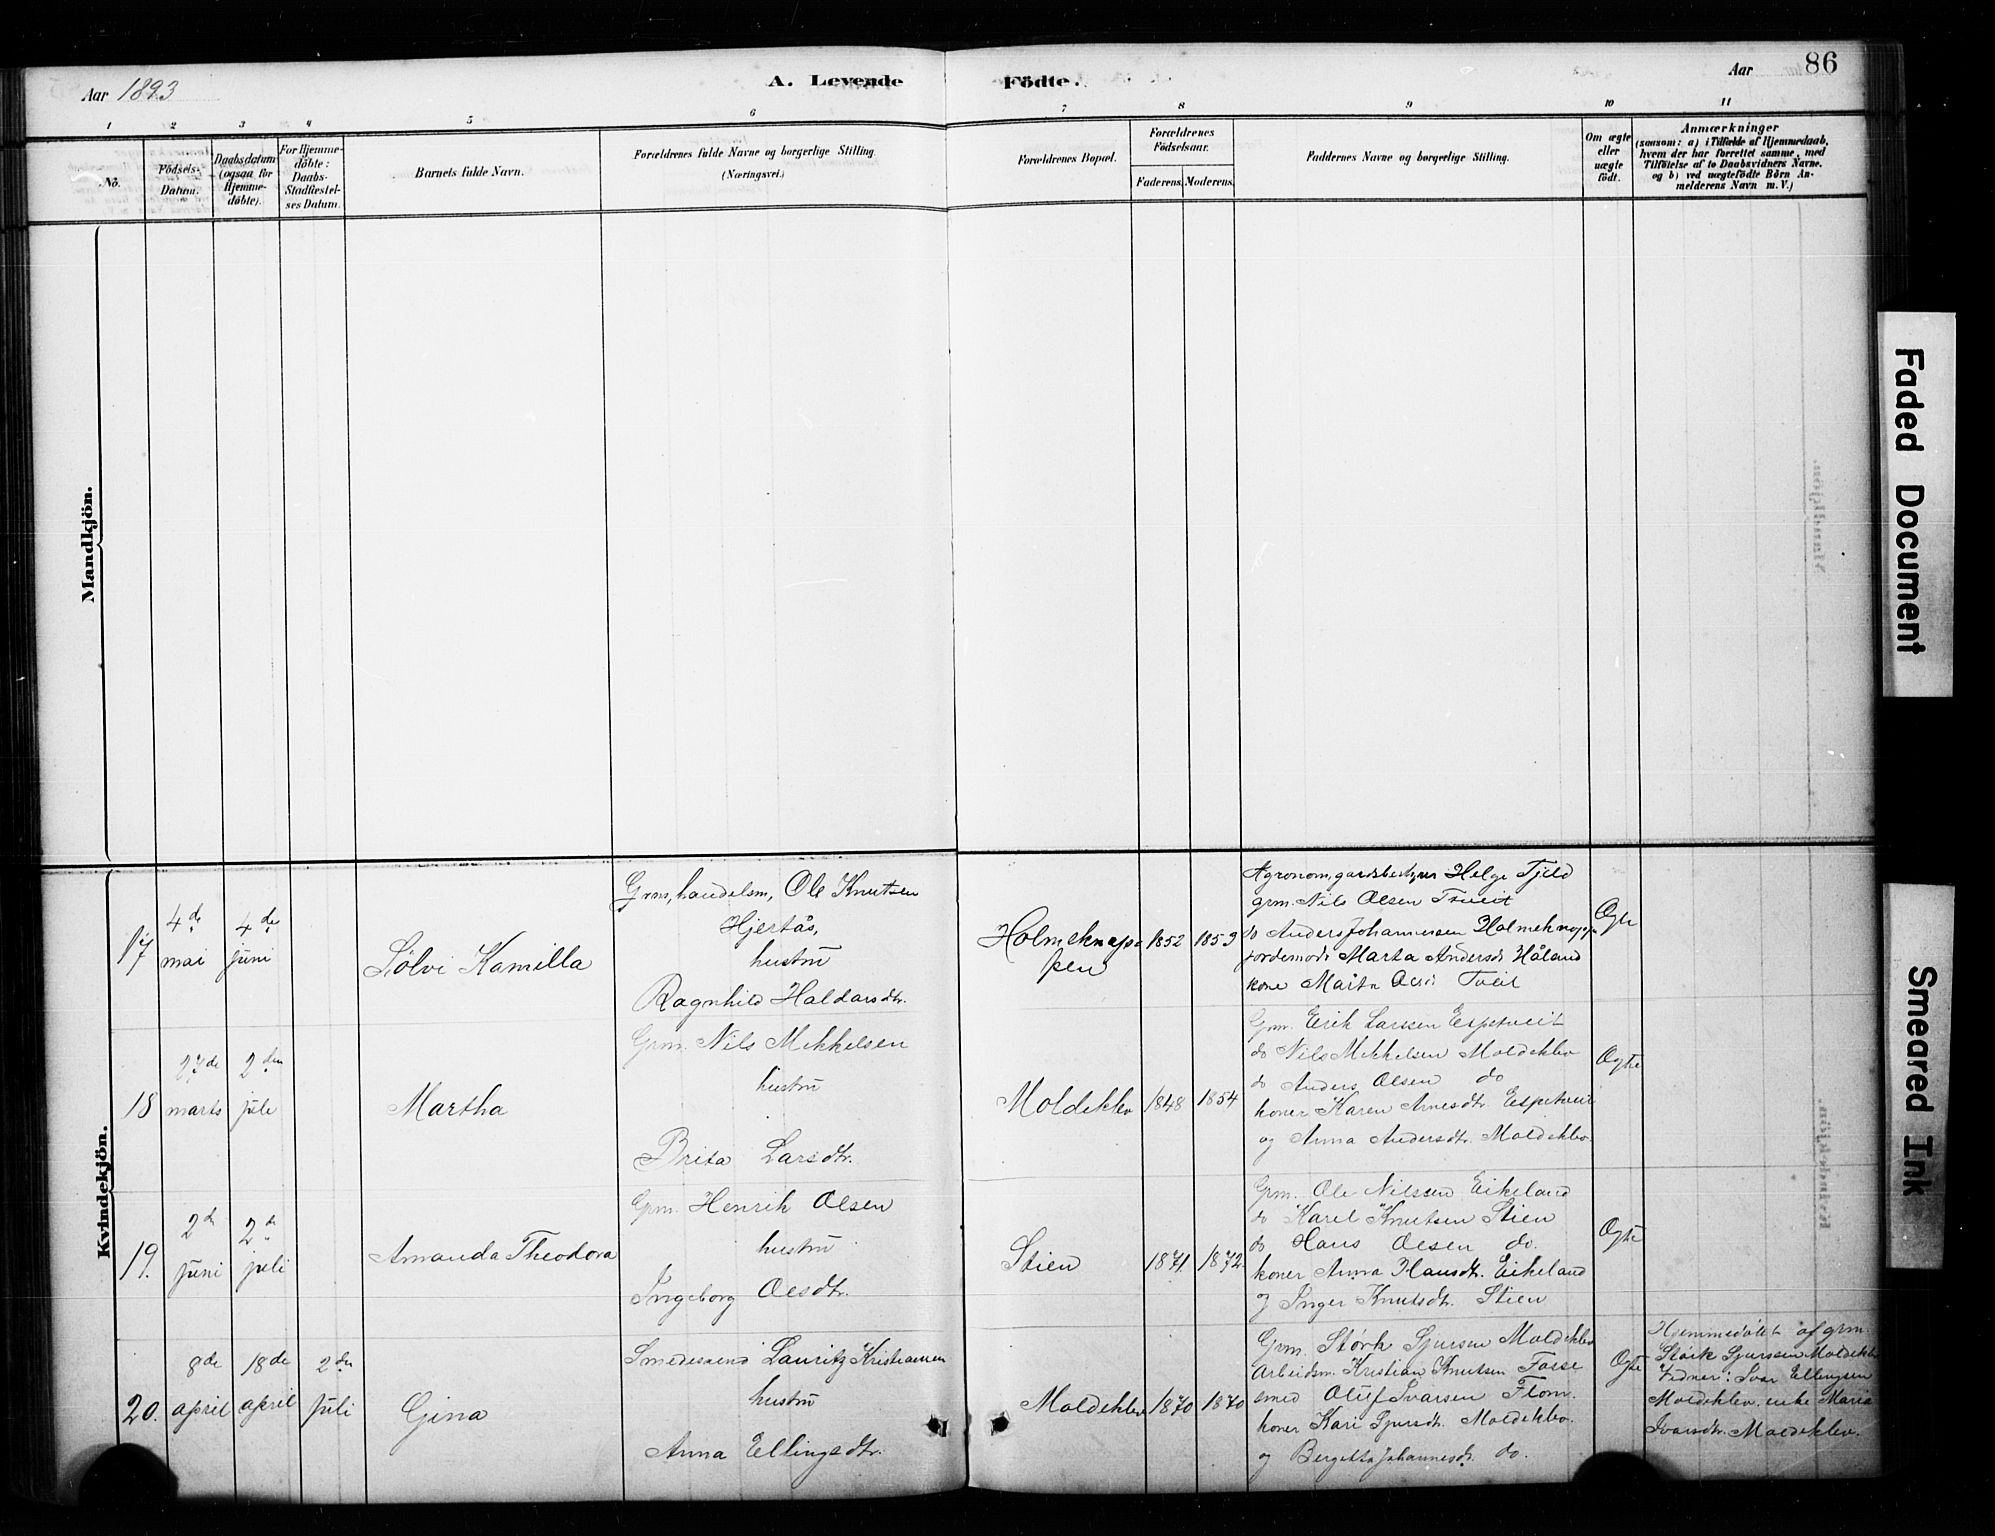 86
Aar 1893
A. Levende Födte.
Aar
1 2 3 4 5 6 7 8 9 10 11
No.
Födsels-
Datum.
Daabsdatum
(ogsaa for
Hjemme-
døbte).
For Hjemme-
døbte:
Daabs-
Stadfæstel-
ses Datum.
Barnets fulde Navn.
Forældrenes fulde Navne og borgerlige Stilling.
(Næringsvei.)
Forældrenes Bopæl.
Forældrenes
Födselsaar.
Faderens. Moderens.
Faddernes Navne og borgerlige Stilling.
Om ægte
eller
uægte
født.
Anmærkninger
(saasom: a) i Tilfælde af Hjemmedaab,
hvem der har forrettet samme, med
Tilføielse af to Daabsvidners Navne,
og b) ved uægtefödte Börn An-
melderens Navn m. V.)
Mandkjön.
Kvindekjön.
17
4de
mai
4de
juni
Sölvi Kamilla
Grm, handelsm, Ole Knutsen
Hjertås,
hustru
Ragnhild Haldorsdtr.
Holmeknap-
pen
1852
1853
Agronom, gardsbestyrer Helge Fjeld
grm. Nils Olsen Tveit
do Anders Johannessen Holmeknap
jordemodr Marta Andersd. Håland
kone Marta Tveit
Ogte
18
27de
marts
2den
juli
Martha
Grm. Nils Mikkelsen
hustru
Brita Larsdtr.
Moldeklev
1848
1854
Grm. Erik Larssen Espetveit
do Nils Mikkelsen Moldeklev
do Anders Olsen do
koner Karen Arnesdtr. Espetveit
og Anna Andersdtr. Moldeklev.
Ogte
19.
2de
juni
2de
juli
Amanda Theodora
Grm. Henrik Olsen
hustru
Ingeborg Olsdtr.
Stien
1871
1872.
Grm. Ole Nilssen Eikeland
do Karel Knutsen Stien
do Hans Olsen do.
koner Anna Hansdtr. Eikeland
og Inger Knutsdtr. Stien
Ogte
20.
8de
april
18de
april
2den
juli
Gina
Smedesvend Lauritz Kristiansen
hustru
Anna Ellingsdtr.
Moldeklev
1870
1870
Grm. Störk Sjursen Moldeklev
arbeidsm. Kristian Knutsen Forse
smed Oluf Ivarsen Flom.
koner Kari Sjursdtr. Moldeklev.
og Bergetta Johannesdr. do.
Ogte
Hjemmedöbt af grm.
Störk Sjurssen Moldeklev
Vidner: Ivar Ellingsen
Moldeklev. enke Maria
Ivarsdtr. Moldeklev.
Faded Document
Smeared Ink